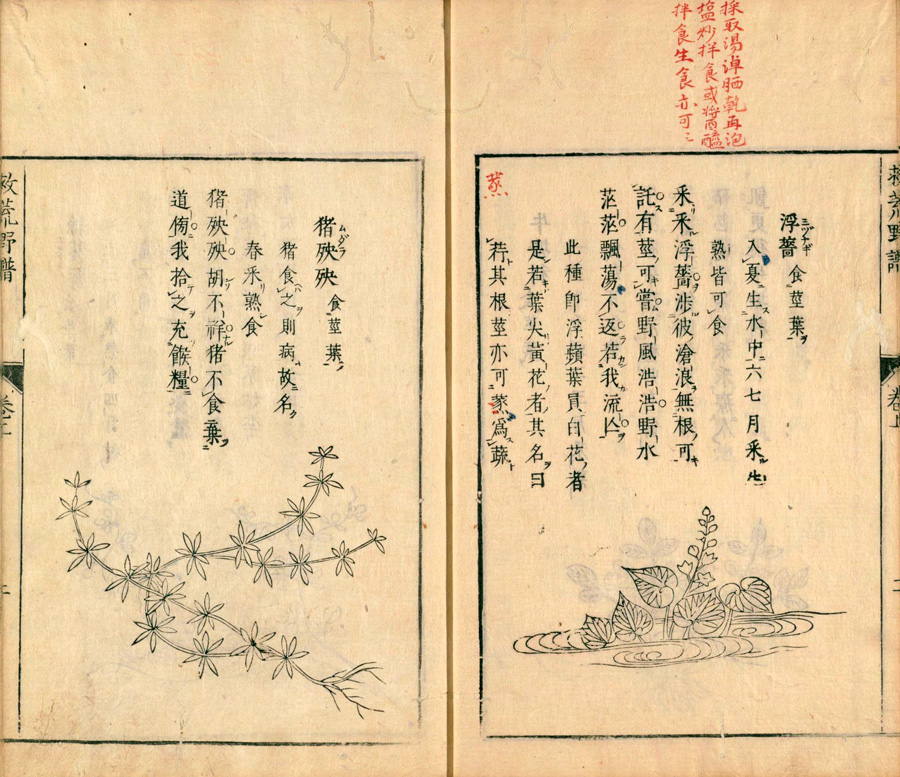 採取湯淖晒乾再泡
塩炒拌食或將醋醯
拌食生食亦可
救荒野譜
卷上
浮薔 食莖葉
ミヅナギ
入夏生水中六七月采生
熟皆可食
采采浮薔涉彼滄浪無根可
託有莖可嘗野風浩浩野水
茫茫飄蕩不返若我流亾
此種即浮蘋葉員白花者
是若葉尖黃花者其名曰
荇其根莖亦可蒸為蔬
蒸
猪殃殃 食莖葉
ムグラ
猪食之則病故名
春采熟食
猪殃殃胡不祥猪不食葉
道傍我拾之充餱糧
救荒野譜
卷上